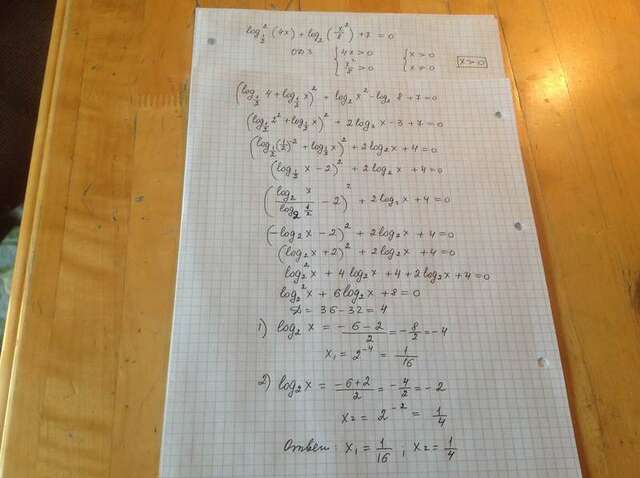 log²_{1/2} (4x) + log₂ (x²/8) + 7 = 0
ОДЗ {4x > 0 {x > 0 x > 0
{x²/8 > 0 {x ≠ 0
(log_{1/2} 4 + log_{1/2} x)² + log₂ x² - log₂ 8 + 7 = 0
(log_{1/2} 2² + log_{1/2} x)² + 2log₂ x - 3 + 7 = 0
(log_{1/2} (1/2)⁻² + log_{1/2} x)² + 2log₂ x + 4 = 0
(log_{1/2} x - 2)² + 2log₂ x + 4 = 0
(log₂ x / log₂ 1/2 - 2)² + 2log₂ x + 4 = 0
(-log₂ x - 2)² + 2log₂ x + 4 = 0
(log₂ x + 2)² + 2log₂ x + 4 = 0
log₂² x + 4log₂ x + 4 + 2log₂ x + 4 = 0
log₂² x + 6log₂ x + 8 = 0
D = 36 - 32 = 4
1) log₂ x = (-6-2)/2 = -8/2 = -4
x₁ = 2⁻⁴ = 1/16
2) log₂ x = (-6+2)/2 = -4/2 = -2
x₂ = 2⁻² = 1/4
Ответ: x₁ = 1/16 ; x₂ = 1/4